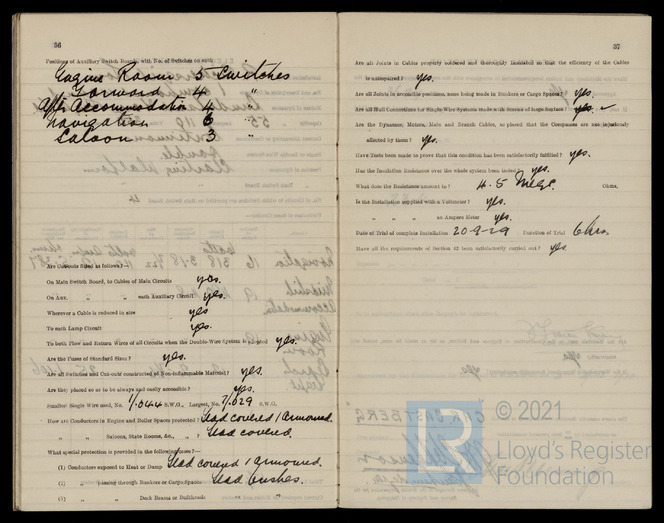 36
Positions of Auxiliary Switch Boards, with No. of Switches on each
Engine Room 5 Switches
Forward 4 "
After Accommodation 4 "
Navigation 6 "
Saloon 3 "
Are Cut-outs fitted as follows?—
On Main Switch Board, to Cables of Main Circuits yes.
On Aux. " " each Auxiliary Circuit yes.
Wherever a Cable is reduced in size yes
To each Lamp Circuit yes.
To both Flow and Return Wires of all Circuits when the Double-Wire System is adopted yes.
Are the Fuses of Standard Sizes? yes.
Are all Switches and Cut-outs constructed of Non-inflammable Material? yes.
Are they placed so as to be always and easily accessible? yes.
Smallest Single Wire used, No. 1/.044 S.W.G., Largest, No. 7/.029 S.W.G.
How are Conductors in Engine and Boiler Spaces protected? Lead covered / armoured.
" " Saloons, State Rooms, &c., " ? Lead covered.
What special protection is provided in the following cases?—
(1) Conductors exposed to Heat or Damp Lead covered / armoured.
(2) " passing through Bunkers or Cargo Spaces Lead bushes.
(3) " " Deck Beams or Bulkheads " "
37
Are all Joints in Cables properly soldered and thoroughly insulated so that the efficiency of the Cables
is unimpaired? yes.
Are all Joints in accessible positions, none being made in Bunkers or Cargo Spaces? yes.
Are all Hull Connections for Single-Wire Systems made with Screws of large Surface? yes.
Are the Dynamos, Motors, Main and Branch Cables, so placed that the Compasses are not injuriously
affected by them? yes.
Have Tests been made to prove that this condition has been satisfactorily fulfilled? yes.
Has the Insulation Resistance over the whole system been tested? yes.
What does the Resistance amount to? 4.5 Mega. Ohms.
Is the Installation supplied with a Voltmeter? yes.
" " " an Ampere Meter yes.
Date of Trial of complete Installation 20-9-29 Duration of Trial 6 hrs.
Have all the requirements of Section 42 been satisfactorily carried out? yes.
© 2021
LR
Lloyd's Register
Foundation